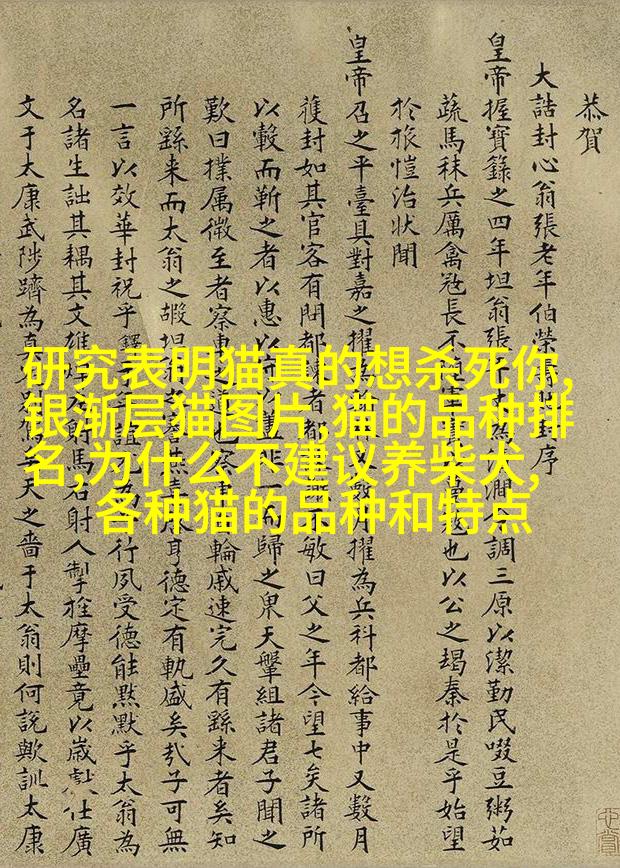 恭賀
大誥封心翁張老年伯榮封序
皇帝握寶錄之四年坦翁張調三原以潔勤民啜豆粥如
蔬馬秣兵厲禽寇長不也以公之竭秦於是乎始望
於旅愷治狀聞
皇帝召之平臺具對嘉之擢數月擢為兵科都給事中又數月
獲封如其官客有問都者都敏曰父之年今望七矣諸所
以轂而靳之者以惠以一而歸之果天鞶組諸君子聞之
歎曰撲属微至者察車之道也察輪戚速完久有繇来者矣知
所繇来而太翁之嘏坦耳德定有軌盛矣哉子可無
一言以效華封祝乎鐸誼為行夙受德能黙默乎太翁為
名諸生詘其耦其文雄射馬石射人掣拴摩壘竟以歲仕廣
文于太康武陟躋為真天之嗇于太翁則何說歟訓太康
研究表明猫真的想杀死你,
银渐层猫图片,猫的品种排
名,为什么不建议养柴犬,
各种猫的品种和特点